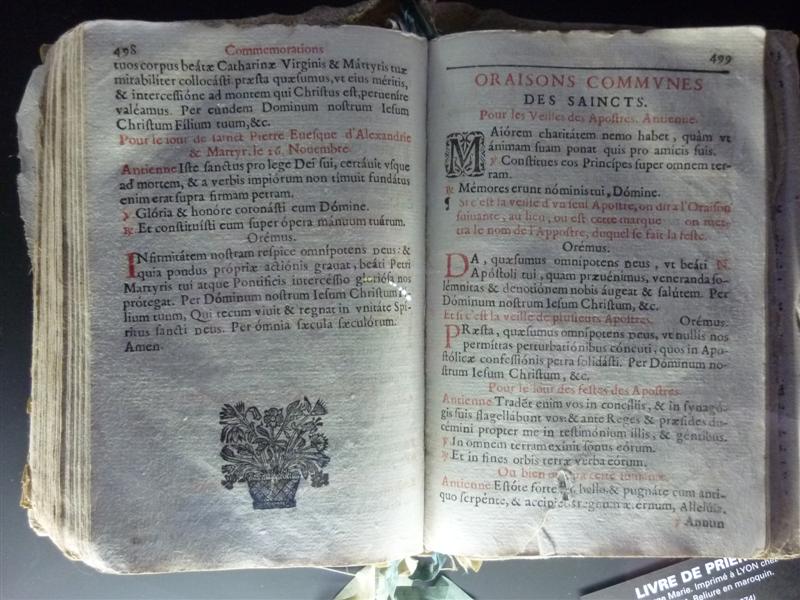 498 Commemorations
tuos corpus beátæ Catharinæ Virginis & Mártyris tuæ
mirabiliter collocásti: præsta quæsumus, vt eius méritis,
& intercessióne ad montem qui Christus est, peruenire
valeámus. Per eúndem Dominum nostrum Iesum
Christum Filium tuum, &c.
Pour le iour de sainct Pierre Euesque d'Alexandrie
& Martyr, le 26. Nouembre.
Antienne Iste sanctus pro lege Dei sui, certáuit vsque
ad mortem, & a verbis impiórum non timuit fundátus
enim erat supra firmam petram.
℣ Glória & honóre coronásti eum Dómine.
℟ Et constituísti eum super ópera mánuum tuárum.
Orémus.
INfirmitátem nostram respice omnípotens Deus: &
quia pondus própriæ actiónis grauat, beáti Petri
Martyris tui atque Pontíficis intercéssio gloriósa nos
prótegat. Per Dóminum nostrum Iesum Christum
lium tuum, Qui tecum viuit & regnat in vnitáte Spi-
ritus sancti Deus. Per ómnia sæcula sæculórum.
Amen.
499
ORAISONS COMMVNES
DES SAINCTS.
Pour les Veilles des Apostres. Antienne.
MAiórem charitátem nemo habet, quàm vt
ánimam suam ponat quis pro amicis suis.
℣ Constitues eos Príncipes super omnem ter-
ram.
℟ Mémores erunt nóminis tui, Dómine.
¶ Si c'est la veille d'vn seul Apostre, on dira l'Oraison
suiuante, au lieu, ou est cette marque on met-
tra le nom de l'Appostre, duquel se fait la feste.
Orémus.
DA, quæsumus omnipotens Deus, vt beáti N.
Apóstoli tui, quam præuénimus, veneranda so-
lémnitas & deuotiónem nobis áugeat & salútem. Per
Dóminum nostrum Iesum Christum, &c.
Et si c'est la veille de plusieurs Apostres. Orémus.
PRæsta, quæsumus omnípotens Deus, vt nullis nos
permíttas perturbatiónibus cóncuti, quos in Apo-
stólicæ confessiónis petra solidásti. Per Dóminum no-
strum Iesum Christum, &c.
Pour le iour des festes des Apostres.
Antienne Tradét enim vos in concíliis, & in synagó-
gis suis flagellábunt vos: & ante Reges & præsides du-
cémini propter me in testimónium illis, & géntibus.
℣ In omnem terram exíuit sonus eórum.
℟ Et in fines orbis terræ verba eórum.
Ou bien cette
Antienne Estóte fortes bello, & pugnáte cum anti-
quo serpénte, & accipietis regnum æternum, Allelúia.
℣ Annun
LIVRE DE PRIE
Marie. Imprimé à LYON chez
Reliure en maroquin.